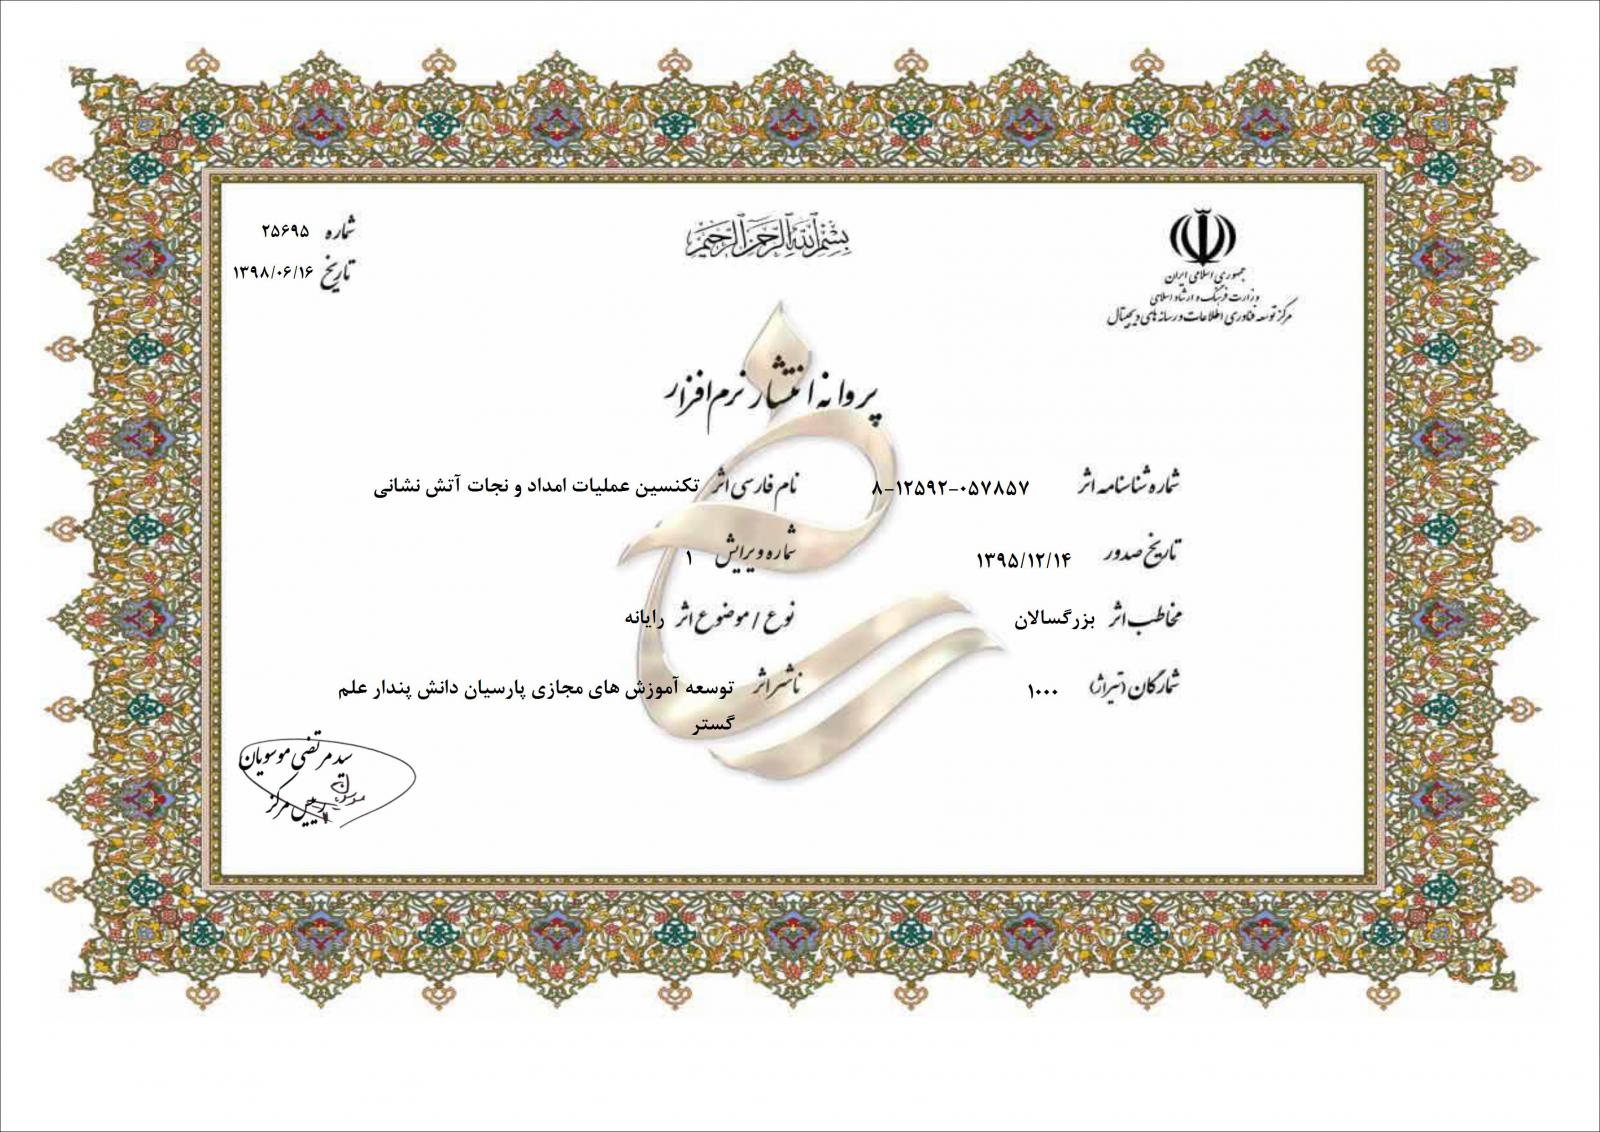 بسم الله الرحمن الرحیم
جمهوری اسلامی ایران
وزارت فرهنگ و ارشاد اسلامی
مرکز توسعه فناوری اطلاعات و رسانه های دیجیتال
شماره ۲۵۶۹۵
تاریخ ۱۳۹۸/۰۶/۱۶
پروانه انتشار نرم افزار
شماره شناسنامه اثر ۸-۱۲۵۹۲-۰۵۷۸۵۷
نام فارسی اثر تکنسین عملیات امداد و نجات آتش نشانی
تاریخ صدور ۱۳۹۵/۱۲/۱۴
شماره ویرایش ۱
مخاطب اثر بزرگسالان
نوع / موضوع اثر رایانه
شمارگان (تیراژ) ۱۰۰۰
ناشر اثر توسعه آموزش های مجازی پارسیان دانش پندار علم
گستر
سید مرتضی موسویان
رییس مرکز